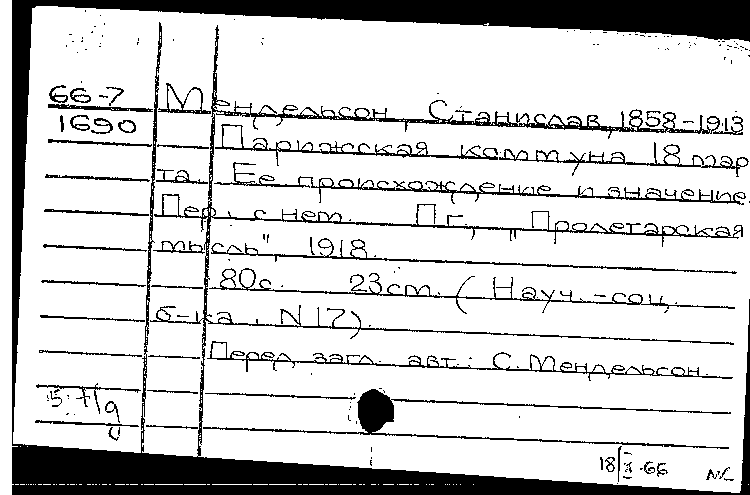 66-7 Мендельсон, Станислав, 1858-1913
1690 Парижская коммуна 18 мар
та. Ее происхождение и значение.
Пер. с нем. Пг., „Пролетарская
мысль", 1918.
80с. 23см. (Науч.-соц.
б-ка, N 17).
Перед загл. авт.: С. Мендельсон.
18 66